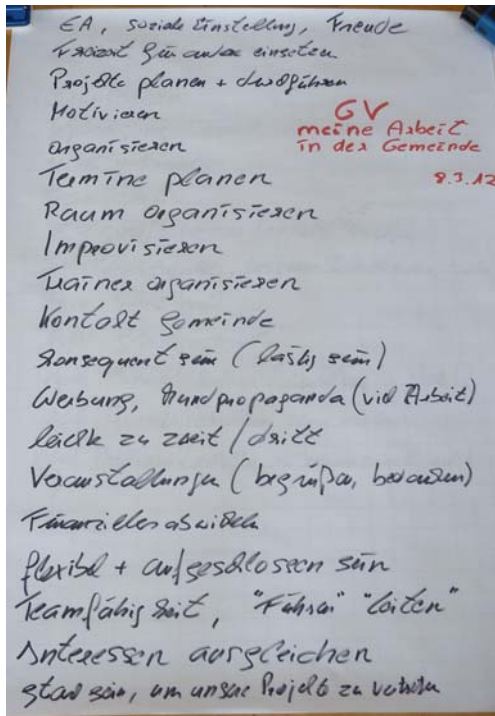 EA, soziale Einstellung, Freude
Freizeit für andere einsetzen
Projekte planen + durchführen
Motivieren
GV
meine Arbeit
in der Gemeinde
organisieren
Termine planen
8.3.12
Raum organisieren
Improvisieren
Trainer organisieren
Kontakt Gemeinde
Konsequent sein (lästig sein)
Werbung, Mundpropaganda (viel Arbeit)
zu zweit / dritt
Veranstaltungen (begrüßen, )
Finanzielles abwickeln
flexibel + aufgeschlossen sein
Teamfähigkeit, "Führen" "leiten"
Interessen ausgleichen
stark sein, um unsere Projekte zu vertreten